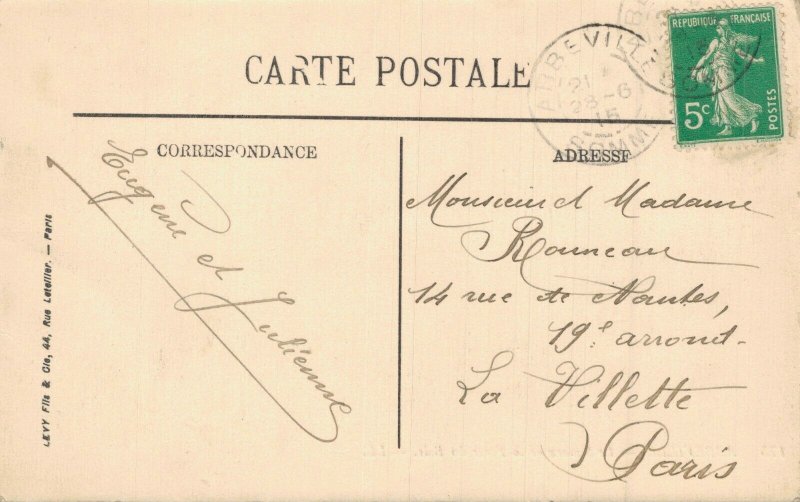 CARTE POSTALE
ABBEVILLE
21
28-6
15
SOMME
REPUBLIQUE FRANÇAISE
5c
POSTES
CORRESPONDANCE
Eugene et Julienne
LEVY Fils & Cie, 44, Rue Letellier. — Paris
ADRESSE
Monsieur et Madame
Rouneau
14 rue de Nantes,
19e arrondt
La Villette
Paris